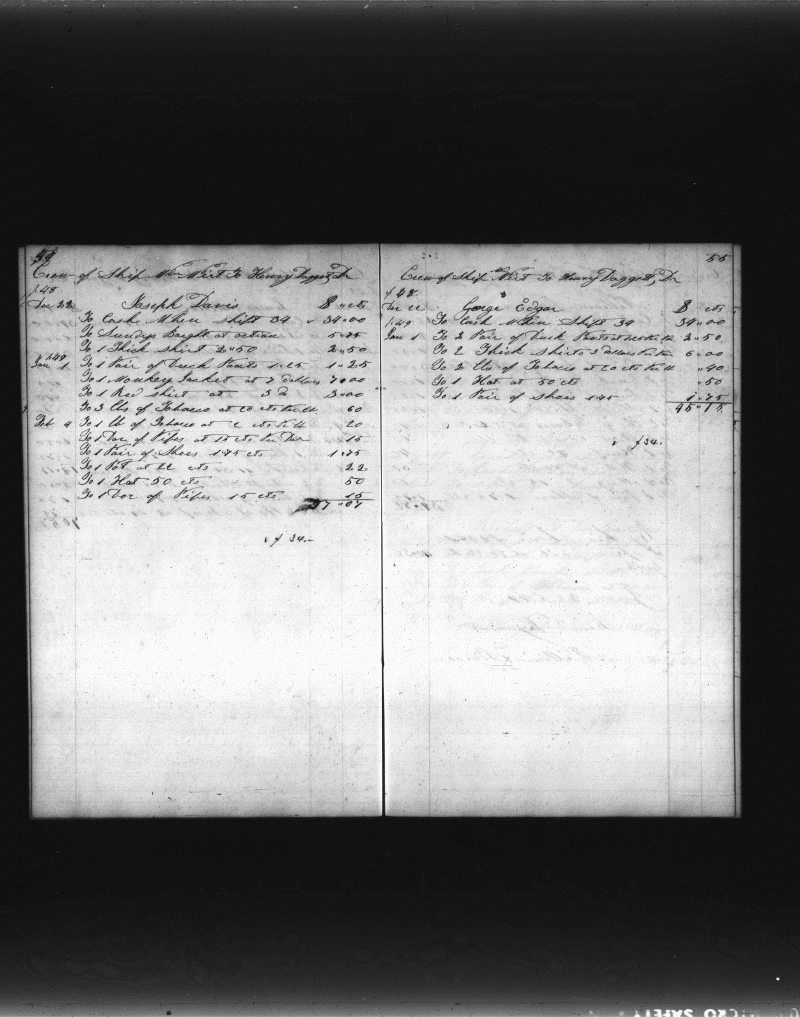 Crew of Ship To Henry Daggett, Dr
1848
Dec 22 Joseph Davis $ cts
To Cash When Shipt 34 34"00
To Sundrys Baught at 5"75
To 1 Thick shirt 2"50 2"50
1849
Jan 1 To 1 Pair of Duck Pants 1"25 1"25
To 1 Monkey Jacket at 7 dollars 7"00
To 1 Red shirt at 3 D 3"00
To 3 lbs of Tobacco at 20 cts 60
Feb 4 To 1 lb of Tobacco at cts 20
To 1 Doz of Pipes at 15 cts Doz 15
To 1 Pair of Shoes 175 cts 1"75
To 1 Pot at 22 cts 22
To 1 Hat 50 cts 50
To 1 Doz of Pipes 15 cts 15
57"07
34.-
55
Crew of Ship To Henry Daggett, Dr
1848
Dec 22 George Edgar $ cts
1849 To Cash When Shipt 34 34"00
Jan 1 To 2 Pair of Duck Pants 2"50
To 2 Thick Shirts 3 dollars 6"00
To 2 lbs of Tobacco at 20 cts "40
To 1 Hat at 50 cts "50
To 1 Pair of shoes 175 1"75
45"15
34.